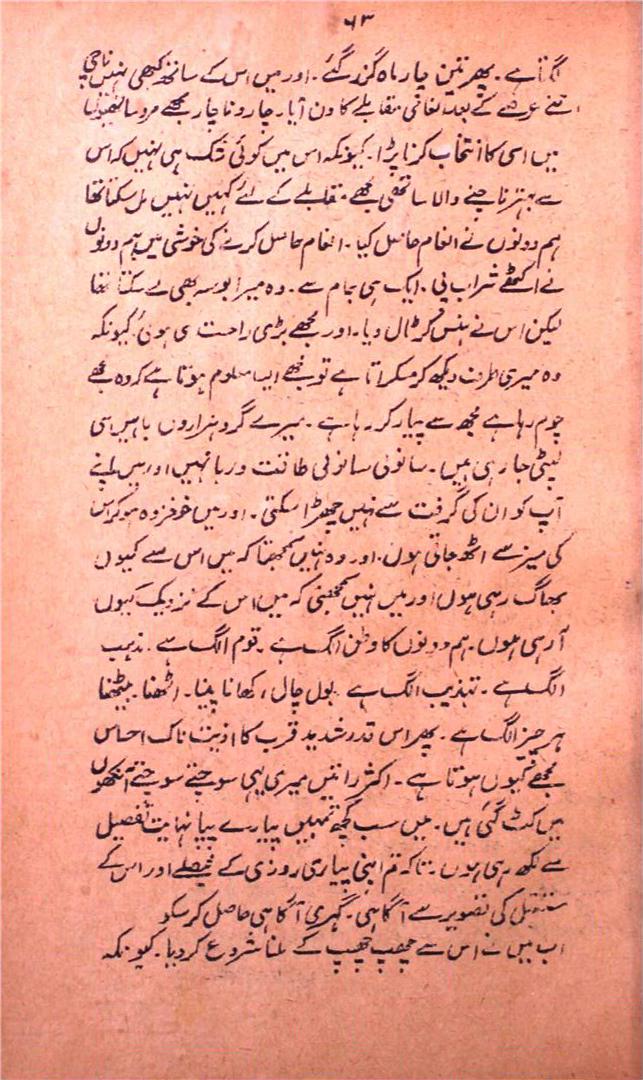 ۶۳
لگتا ہے۔ پھر تین چار ماہ گزر گئے۔ اور میں اس کے ساتھ کبھی نہیں ناچی
اتنے عرصے کے بعد مقابلے کا دن آیا۔ چار و ناچار مجھے
میں اسی کا انتخاب کرنا پڑا۔ کیونکہ اس میں کوئی شک ہی نہیں کہ اس
سے بہتر ناچنے والا ساتھی مجھے مقابلے کے لئے کہیں نہیں مل سکتا تھا
ہم دونوں نے انعام حاصل کیا۔ انعام حاصل کرنے کی خوشی میں ہم دونوں
نے اکٹھے شراب پی۔ ایک ہی جام سے۔ وہ میرا بوسہ بھی لے سکتا تھا
لیکن اس نے ہنس کر ٹال دیا۔ اور مجھے بڑی راحت سی ہوئی کیونکہ
وہ میری طرف دیکھ کر مسکراتا ہے تو مجھے ایسا معلوم ہوتا ہے کہ وہ مجھے
چوم رہا ہے مجھ سے پیار کر رہا ہے۔ میرے گرد ہزاروں باہیں سی
لپٹی جا رہی ہیں۔ سانولی سانولی طاقت ور باہیں اور میں اپنے
آپ کو ان کی گرفت سے نہیں چھڑا سکتی۔ اور میں خوفزدہ ہو کر اس
کی میز سے اٹھ جاتی ہوں۔ اور وہ نہیں سمجھتا کہ میں اس سے کیوں
بھاگ رہی ہوں اور میں نہیں سمجھتی کہ میں اس کے نزدیک کیوں
آ رہی ہوں۔ ہم دونوں کا وطن الگ ہے۔ قوم الگ ہے۔ مذہب
الگ ہے۔ تہذیب الگ ہے بول چال، کھانا پینا۔ اٹھنا۔ بیٹھنا
ہر چیز الگ ہے۔ پھر اس قدر شدید قرب کا اذیت ناک احساس
مجھے کیوں ہوتا ہے۔ اکثر راتیں میری یہی سوچتے سوچتے آنکھوں
میں کٹ گئی ہیں۔ میں سب کچھ تمہیں پیارے پپا نہایت تفصیل
سے لکھ رہی ہوں۔ تاکہ تم اپنی پیاری روزی کے فیصلے اور اس کے
مستقبل کی تصویر سے آگاہی۔ گہری آگاہی حاصل کر سکو
اب میں نے اس سے چھپ چھپ کے ملنا شروع کر دیا۔ کیونکہ